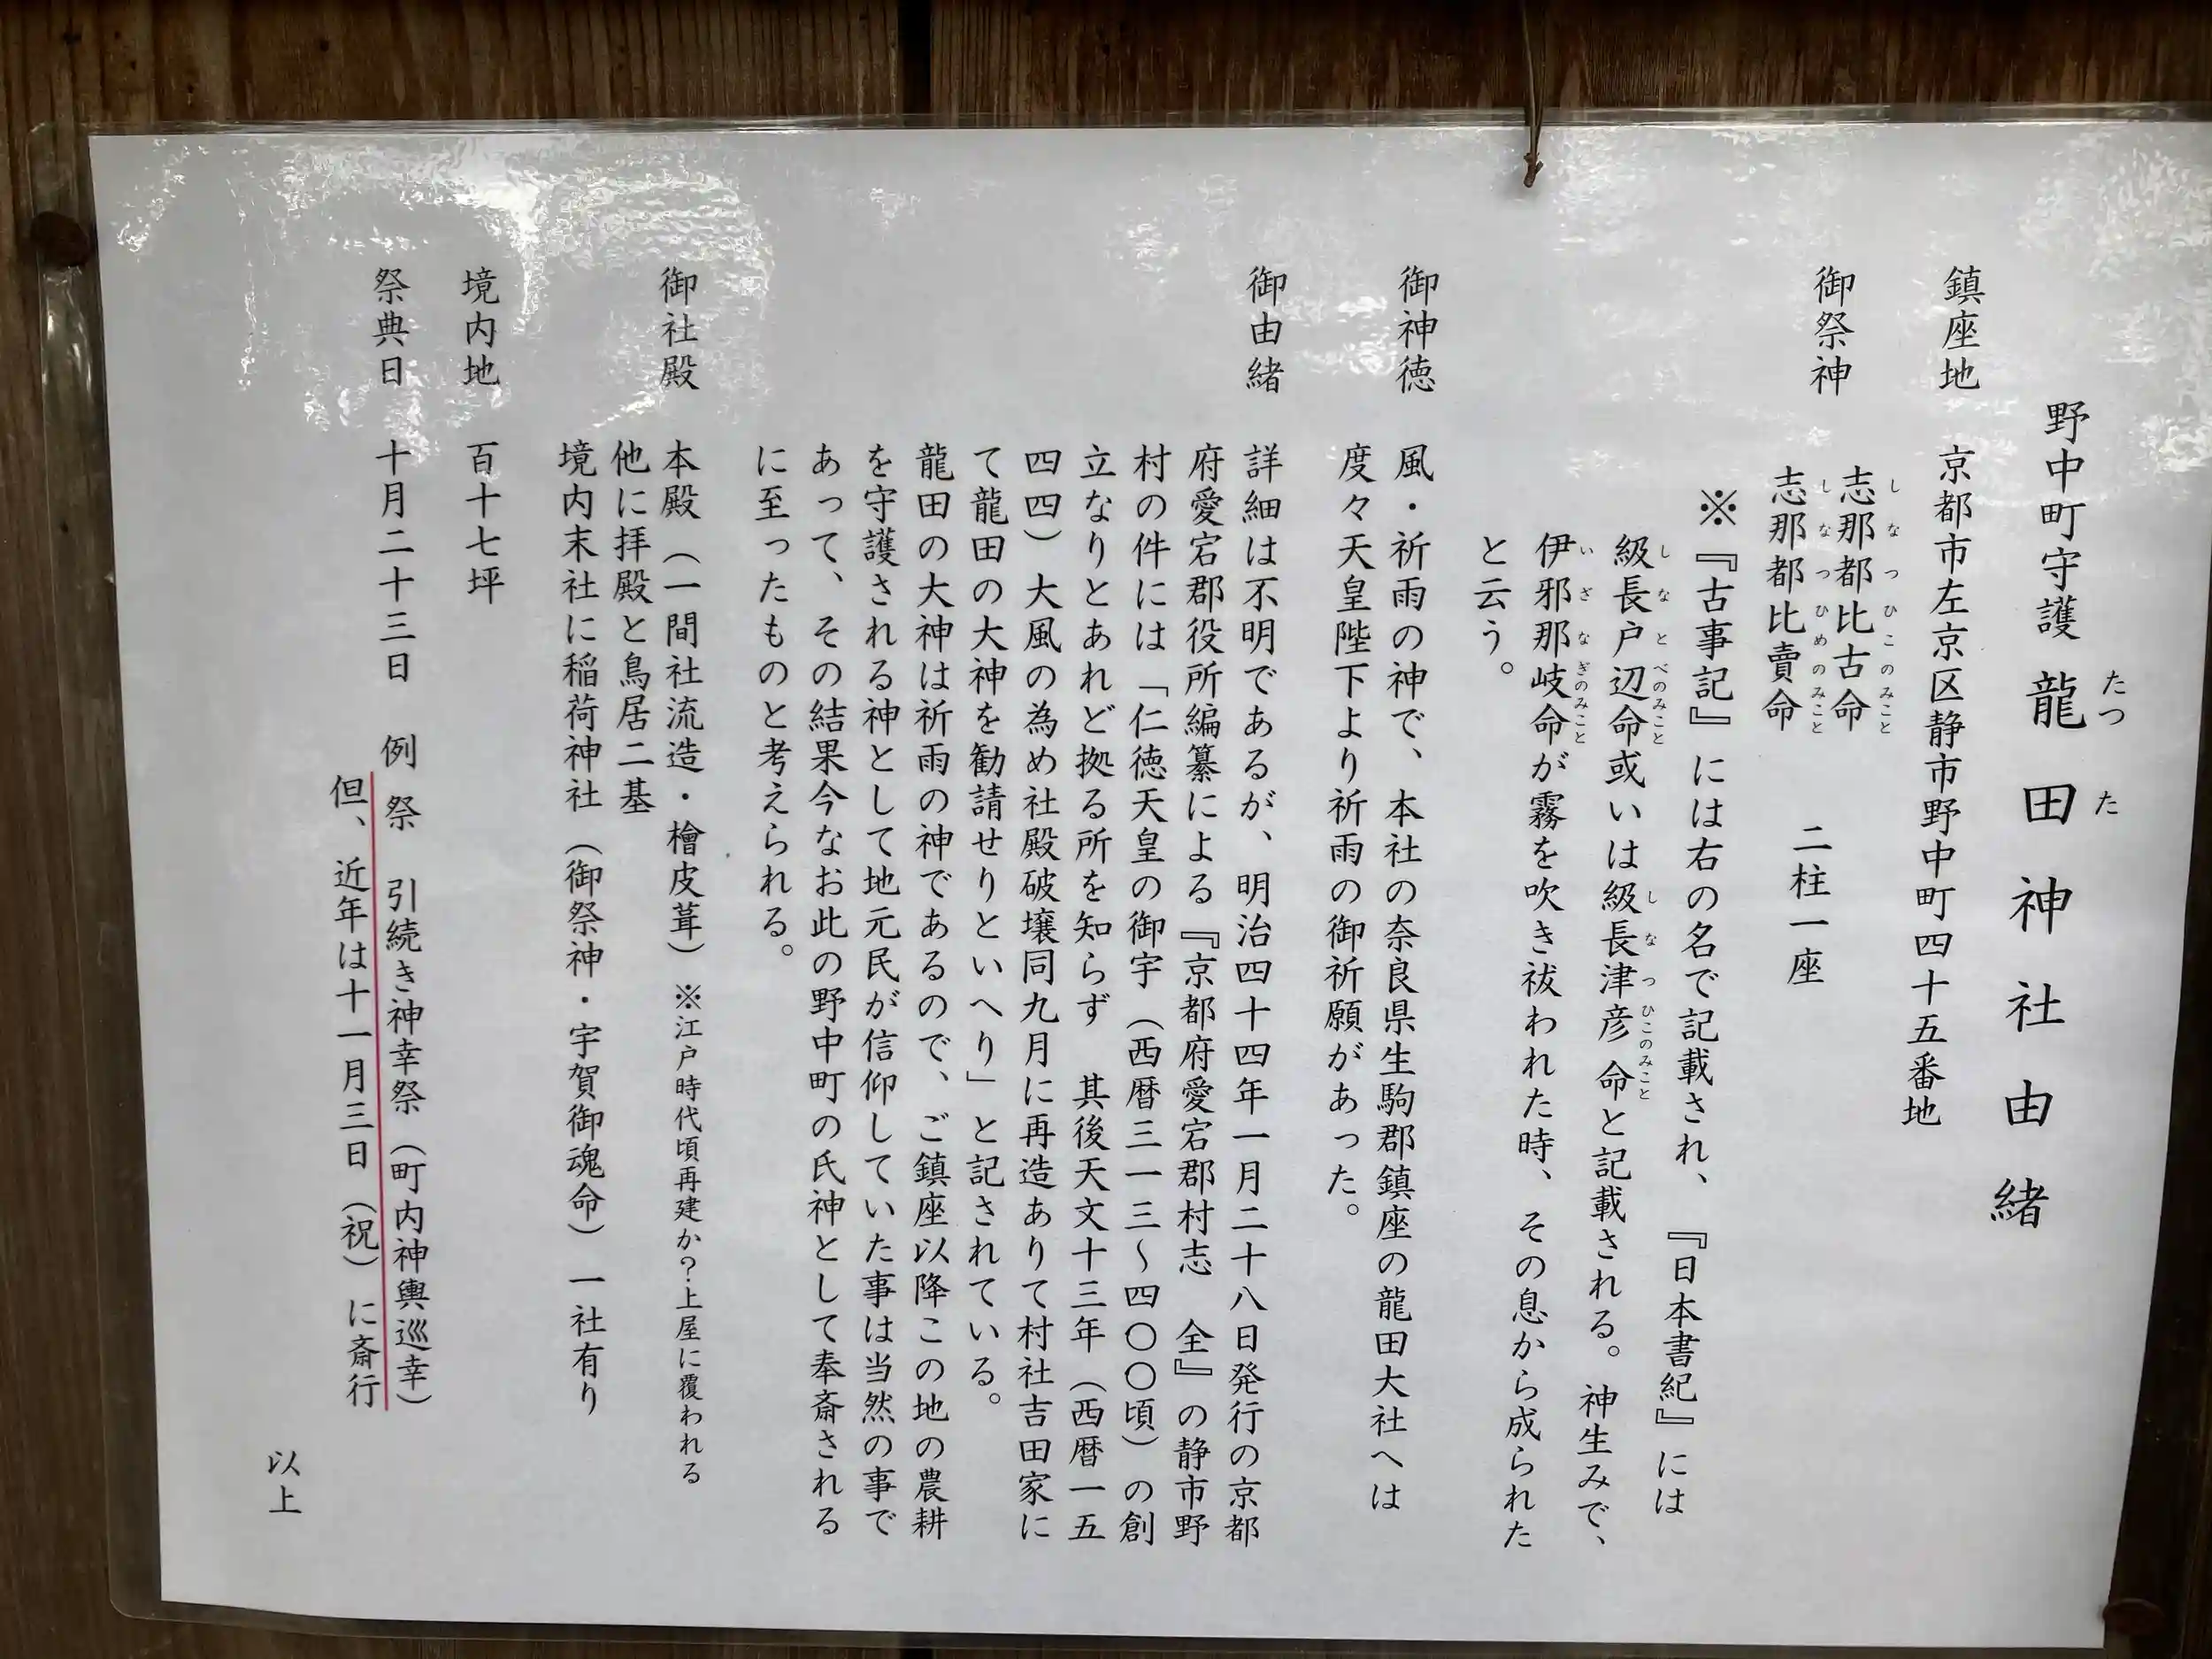 野中町守護 龍田神社由緒
たつ た
鎮座地 京都市左京区静市野中町四十五番地
御祭神 志那都比古命
しなつひこのみこと
志那都比賣命
しなつひめのみこと
二柱一座
※『古事記』には右の名で記載され、『日本書紀』には
級長戸辺命或いは級長津彦命と記載される。神生みで、
しなとべのみこと しなつひこのみこと
伊邪那岐命が霧を吹き祓われた時、その息から成られた
いざなぎのみこと
と云う。
御神徳 風・祈雨の神で、本社の奈良県生駒郡鎮座の龍田大社へは
度々天皇陛下より祈雨の御祈願があった。
御由緒 詳細は不明であるが、明治四十四年一月二十八日発行の京都
府愛宕郡役所編纂による『京都府愛宕郡村志 全』の静市野
村の件には「仁徳天皇の御宇（西暦三一三～四〇〇頃）の創
立なりとあれど拠る所を知らず 其後天文十三年（西暦一五
四四）大風の為め社殿破壊同九月に再造ありて村社吉田家に
て龍田の大神を勧請せりといへり」と記されている。
龍田の大神は祈雨の神であるので、ご鎮座以降この地の農耕
を守護される神として地元民が信仰していた事は当然の事で
あって、その結果今なお此の野中町の氏神として奉斎される
に至ったものと考えられる。
御社殿 本殿（一間社流造・檜皮葺）※江戸時代頃再建か？上屋に覆われる
他に拝殿と鳥居二基
境内末社に稲荷神社（御祭神・宇賀御魂命）一社有り
境内地 百十七坪
祭典日 十月二十三日 例祭 引続き神幸祭（町内神輿巡幸）
但、近年は十一月三日（祝）に斎行
以上